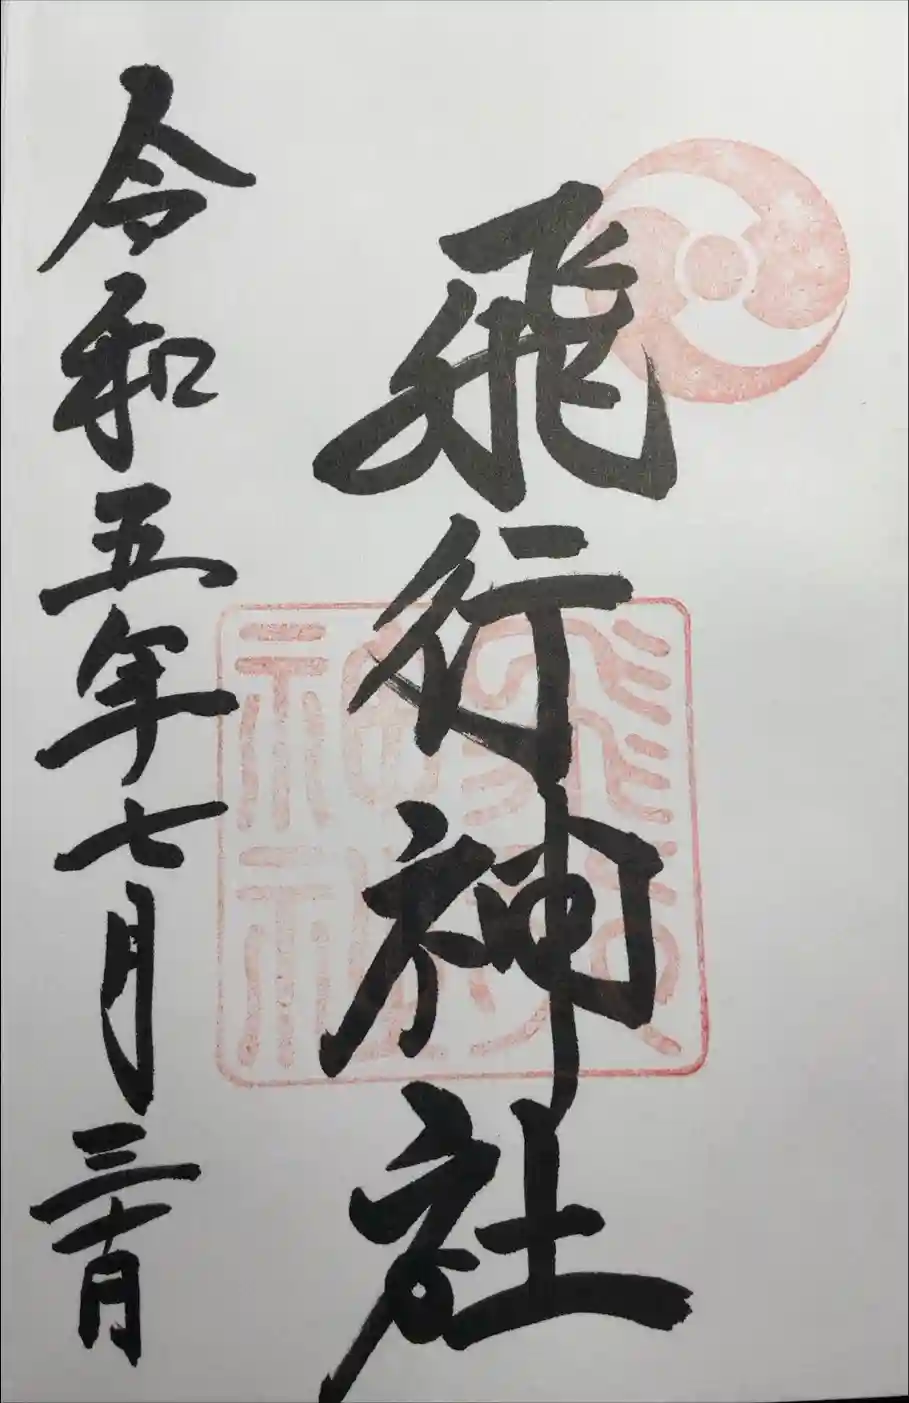 飛行神社
飛行神社
令和五年七月三十日